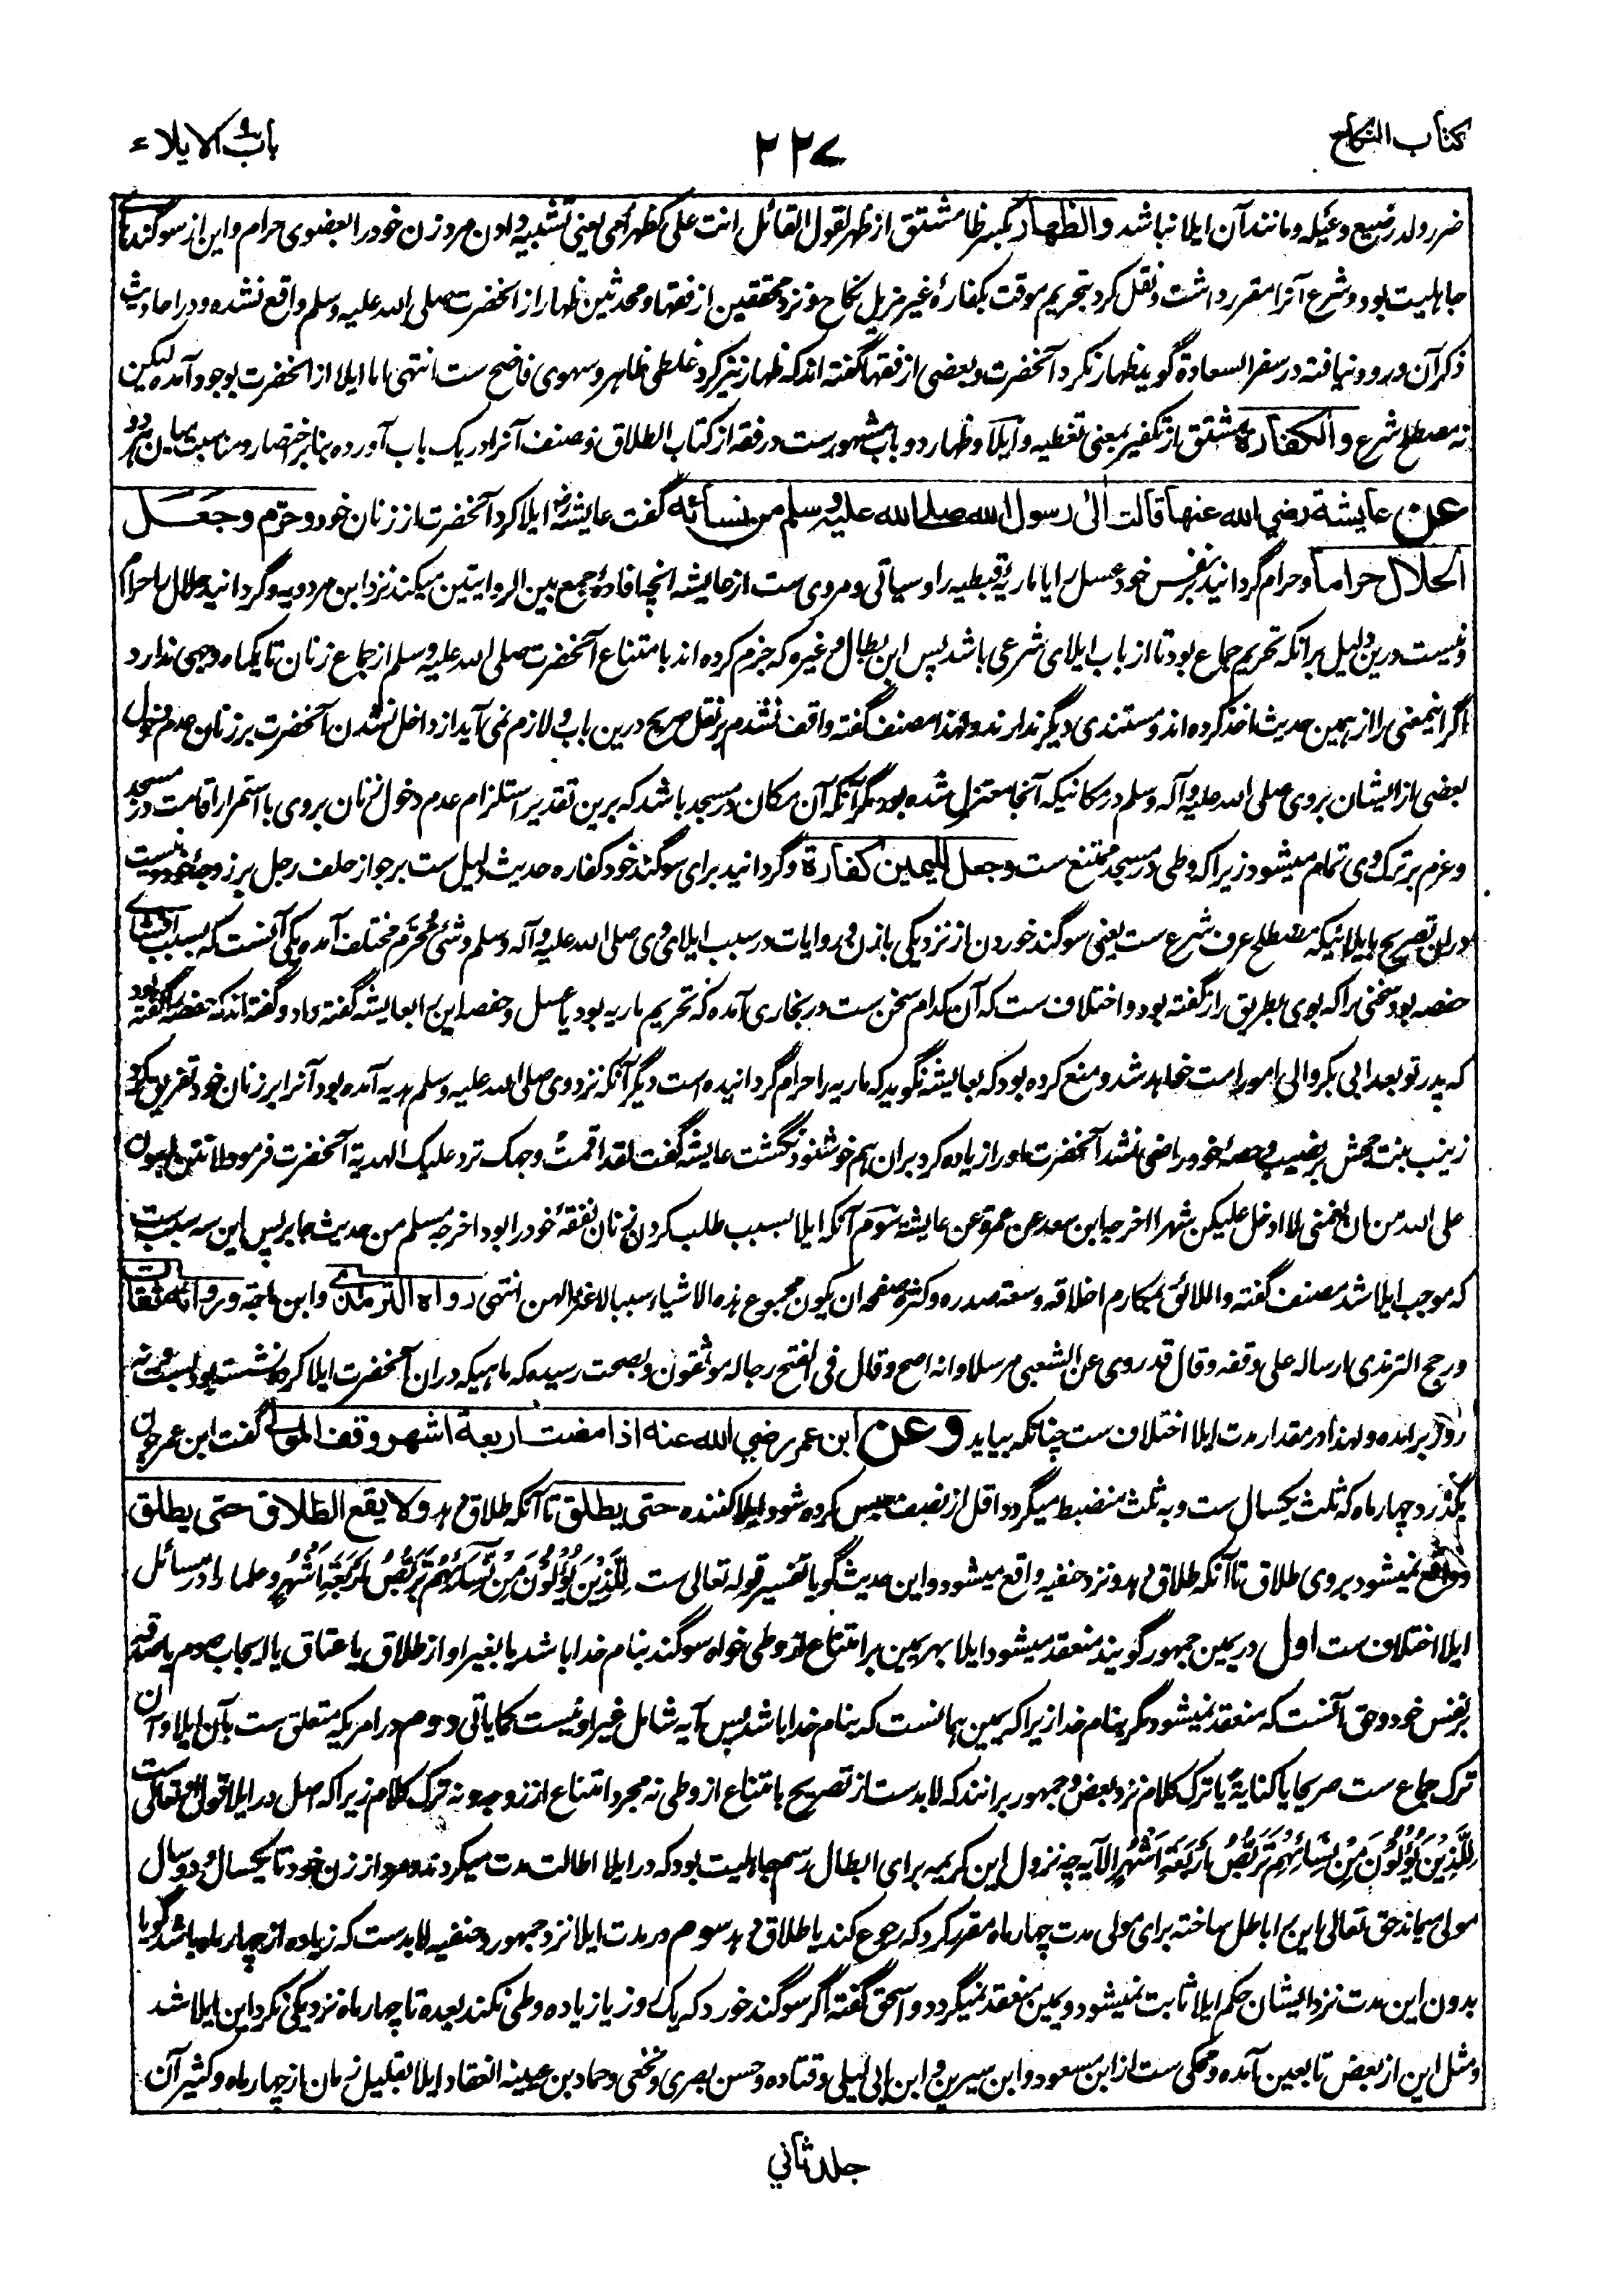 كتاب النكاح
۲۲۷
باب الايلاء
ضرر ولد رضيع و غیله و مانند آن ایلا نباشد والظهار بکسر ظا مشتق از ظهر لقول القائل انت علی کظهر امی یعنی تشبیه دادن مرد زن خود را بعضوی حرام و این از سوگندهای
جاهلیت بود و شرع آنرا مقرر داشت و نقل کرد بتحریم موقت بکفارهٔ غیر مزیل نکاح و نزد محققین از فقها و محدثین ظهار از آنحضرت صلی الله علیه وسلم واقع نشده و در احادیث
ذکر آن ورود نیافته در سفر السعادة گوید ظهار نکرد آنحضرت و بعضی از فقها گفته اند که ظهار نیز کرد غلطی ظاهر و سهوی فاضح ست انتهی اما ایلا از آنحضرت بوجود آمده لیکن
نه مصطلح شرع والكفارة مشتق از تکفیر بمعنی تغطیه و ایلا و ظهار دو باب مشهورست در فقه از کتاب الطلاق و مصنف آنرا در یک باب آورده بنابر اختصار و مناسبت میان هر دو
عن عايشة رضي الله عنها قالت الى رسول الله صلى الله عليه وسلم من نسائه گفت عایشه ایلا کرد آنحضرت از زنان خود و حرّم وجعل
الحلال حراما و حرام گردانید بر نفس خود عسل را یا ماریهٔ قبطیه را و سیاتی و مروی ست از عایشه انچه افادهٔ جمع بین الروایتین میکند نزد ابن مردویه و گردانید حلال را حرام
و نیست درین دلیل بر آنکه تحریم جماع بود تا از باب ایلای شرعی باشد پس ابن بطال و غیره که جزم کرده اند بامتناع آنحضرت صلی الله علیه وسلم از جماع زنان تا یکماه وجهی ندارد
اگر اینمعنی را از همین حدیث اخذ کرده اند و مستندی دیگر ندارند و لهذا مصنف گفته واقف نشدم بر نقل صریح درین باب و لازم نمی آید از داخل نشدن آنحضرت بر زنان عدم دخول
بعضی از ایشان بروی صلی الله علیه وآله وسلم در مکانیکه آنجا معتزل شده بود مگر آنکه آن مکان در مسجد باشد که برین تقدیر استلزام عدم دخول زنان بروی با استمرار اقامت در مسجد
و عزم بر ترک وی تمام میشود زیرا که وطی در مسجد ممتنع ست وجعل لليمين كفارة و گردانید برای سوگند خود کفاره حدیث دلیل ست بر جواز حلف رجل بر زوجهٔ خود و نیست
دران تصریح بایلائیکه مصطلح عرف شرع ست یعنی سوگند خوردن از نزدیکی با زن و روایات در سبب ایلای وی صلی الله علیه وآله وسلم و شئ محرّم مختلف آمده یکی آنست که بسبب افشای
حفصه بود سخنی را که بوی بطریق راز گفته بود و اختلاف ست که آن کدام سخن ست در بخاری آمده که تحریم ماریه بود یا عسل و حفصه این را بعایشه گفته داد و گفته اند که حفصه را گفته بود
که پدر تو بعد ابی بکر والی امور امت خواهد شد و منع کرده بود که بعایشه نگوید که ماریه را حرام گردانیده است دیگر آنکه نزد وی صلی الله علیه وسلم هدیه آمده بود آنرا بر زنان خود تفریق کرد
زینب بنت جحش بر نصیب و حصهٔ خود راضی نشد آنحضرت او را زیاده کرد بران هم خوشنود نگشت عایشه گفت لقد اقمت وجهک ترد علیک الهدیة آنحضرت فرمود لانتن اهون
علی الله من ان تغمنی لا ادخل علیکن شهرا اخرجه ابن سعد عن عمرة عن عایشة سوم آنکه ایلا بسبب طلب کردن زنان نفقهٔ خود را بود اخرجه مسلم من حدیث جابر پس این سه سبب ست
که موجب ایلا شد مصنف گفته و اللائق بمکارم اخلاقه وسعة صدره وکثرة صفحه ان یکون مجموع هذه الاشیاء سببا لاعتزالهن انتهی رواه الترمذي و ابن ماجة ورواته ثقات
ورجح الترمذی ارساله علی وقفه وقال قد روی عن الشعبی مرسلا وانه اصح وقال فی الفتح رجاله موثقون و بصحت رسیده که ماهیکه دران آنحضرت ایلا کرده نشسته بود بست و نه
روز برآمده و لهذا در مقدار مدت ایلا اختلاف ست چنانکه بیاید وعن ابن عمر رضي الله عنه اذا مضت اربعة اشهر وقف المولى گفت ابن عمر چون
بگذرد چهار ماه که ثلث یکسال ست و به ثلث منضبط میگردد اقل از نصف حبس کرده شود ایلا کننده حتى يطلق تا آنکه طلاق دهد ولا يقع الطلاق حتى يطلق
و واقع نمیشود بروی طلاق تا آنکه طلاق دهد و نزد حنفیه واقع میشود و این حدیث گویا تفسیر قوله تعالی ست لِلَّذِيْنَ يُؤْلُوْنَ مِنْ نِّسَآئِهِمْ تَرَبُّصُ اَرْبَعَةِ اَشْهُرٍ و علما را در مسائل
ایلا اختلاف ست اول در یمین جمهور گویند منعقد میشود ایلا بهر یمین بر امتناع از وطی خواه سوگند بنام خدا باشد یا بغیر او از طلاق یا عتاق یا ایجاب صوم یا صدقه
بر نفس خود و حق آنست که منعقد نمیشود مگر بنام خدا زیرا که یمین همانست که بنام خدا باشد پس آیه شامل غیر او نیست کما یاتی دوم در امریکه متعلق ست بآن ایلا و آن
ترک جماع ست صریحا یا کنایةً یا ترک کلام نزد بعض و جمهور برانند که لابدست از تصریح بامتناع از وطی نه مجرد امتناع از زوجه و نه ترک کلام زیرا که اصل در ایلا قول او تعالی ست
لِلَّذِيْنَ يُؤْلُوْنَ مِنْ نِسَائِهِمْ تَرَبُّصُ اَرْبَعَةِ اَشْهُرٍ الآیه چه نزول این کریمه برای ابطال رسم جاهلیت بود که در ایلا اطالت مدت میکردند و مرد از زن خود تا یکسال و دو سال
مولی میماند حق تعالی این را باطل ساخته برای مولی مدت چهار ماه مقرر کرد که رجوع کند یا طلاق دهد سوم در مدت ایلا نزد جمهور و حنفیه لابدست که زیاده از چهار ماه باشد گویا
بدون این مدت نزد ایشان حکم ایلا ثابت نمیشود و یمین منعقد نمیگردد و اسحق گفته اگر سوگند خورد که یک روز یا زیاده وطی نکند بعده تا چهار ماه نزدیکی نکرد این ایلا شد
و مثل این از بعض تابعین آمده و محکی ست از ابن مسعود و ابن سیرین و ابن ابی لیلی و قتاده و حسن بصری و نخعی و حماد بن عیینه انعقاد ایلا بقلیل زمان از چهار ماه و کثیر آن
جلد ثاني